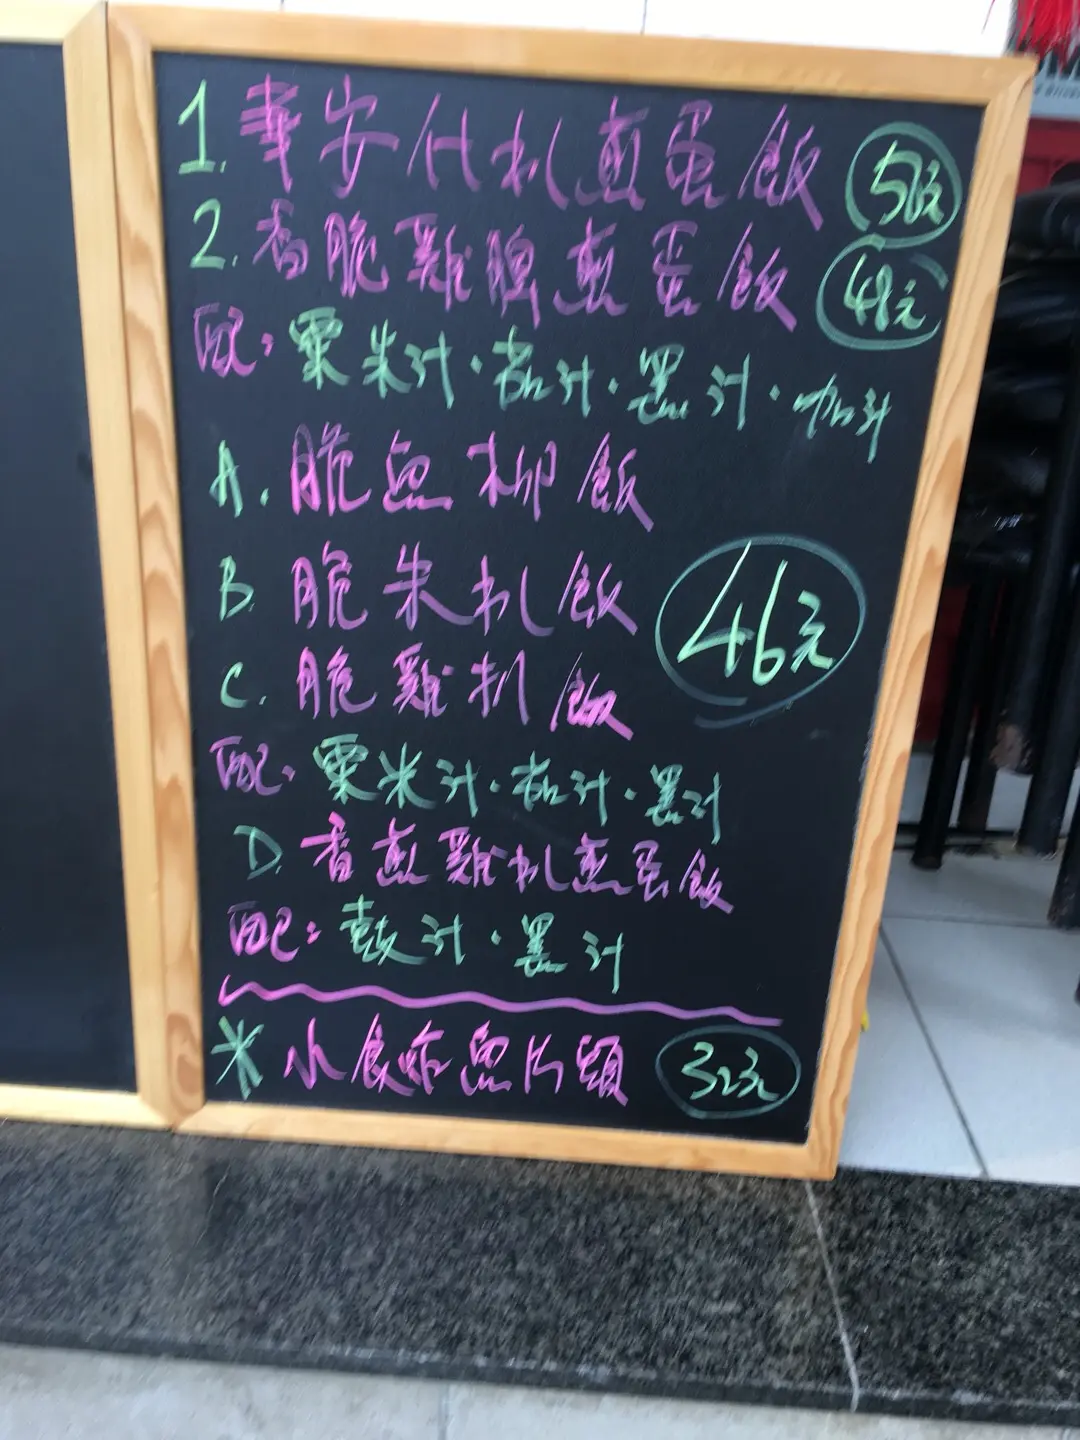 1. 華安什扒煎蛋飯
2. 香脆雞脾煎蛋飯 48元
配: 粟米汁·茄汁·黑汁·加汁
A. 脆魚柳飯
B. 脆朱扒飯 46元
C. 脆雞扒飯
配. 粟米汁·茄汁·黑汁
D. 香煎雞扒煎蛋飯
配: 豉汁·黑汁
* 小食炸魚片頭 32元